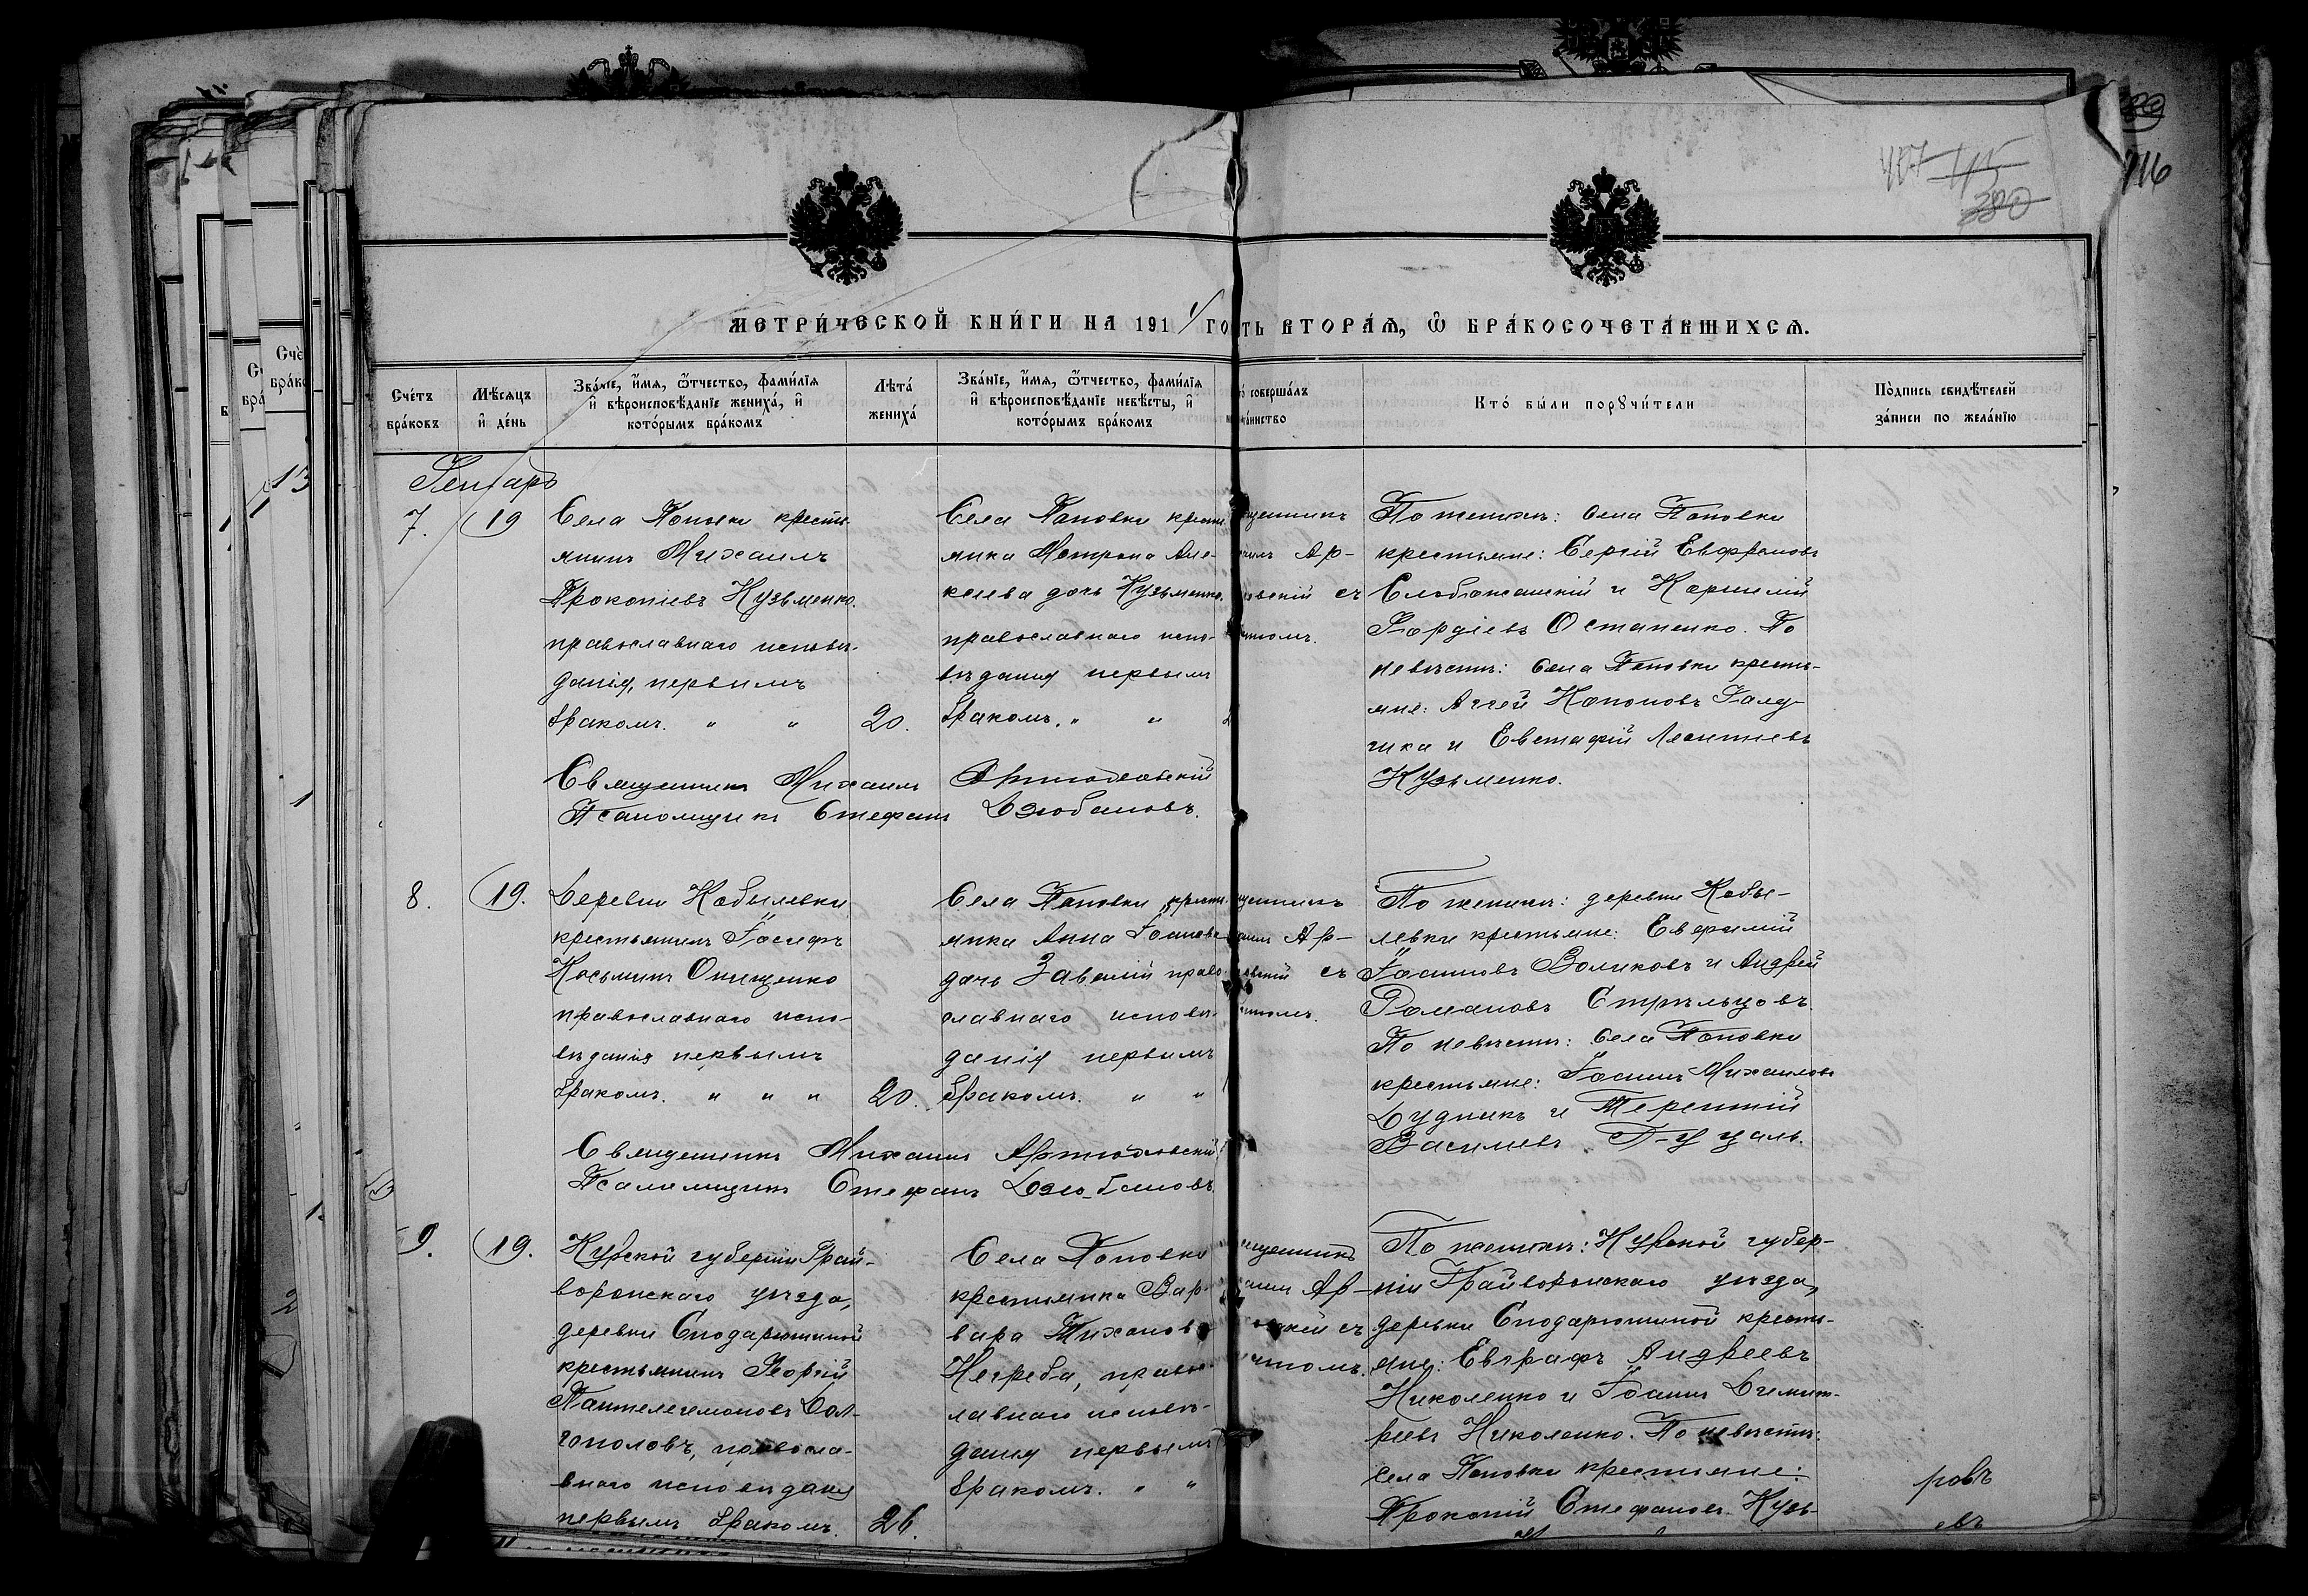 407 115
380
116
МЕТРИ́ЧЕСКОЙ КНИ́ГИ НА 1911 ГО
ТЬ ВТОРА́Ѧ, Ѿ БРА́КОСОЧЕТА́ВШИХСѦ.
Сче́тъ бра́ковъ
Мѣ́сяцъ и҆ де́нь
Зва́нїе, и҆́мѧ, ѻ҆́тчество, фами́лїѧ и҆ вѣроисповѣ́данїе жениха̀, и҆ кото́рымъ бра́комъ
Лѣта̀ жениха̀
Зва́нїе, и҆́мѧ, ѻ҆́тчество, фами́лїѧ и҆ вѣроисповѣ́данїе невѣ́сты, и҆ кото́рымъ бра́комъ
о́ соверша́лъ та́инство
Кто̀ бы́ли порꙋчи́тели
По́дпись свидѣ́телей за́писи по жела́нїю
Генварь
7.
19
Села Поповки кресть-
янинъ Михаилъ
Прокопіевъ Кузьменко.
православнаго исповѣ-
данія, первымъ
бракомъ. " "
20.
Села Поповки кресть-
янка Матрона Але-
ксеева дочь Кузьменко.
православнаго испо-
вѣданія первымъ
бракомъ. " "
щенникъ
аилъ Ар-
овскій съ
щикомъ.
По женихѣ: села Поповки
крестьяне: Сергій Евфремовъ
Слобожанскій и Корнилій
Гордіевъ Остапенко. По
невѣстѣ: села Поповки кресть-
яне: Аггей Кононовъ Галу-
шка и Евстафій Леонтіевъ
Кузьменко.
Священникъ Михаилъ Артюховскій
Псаломщикъ Стефанъ Дзюбановъ.
8.
19.
Деревни Кобылевки
крестьянинъ Іосифъ
Косьминъ Онищенко
православнаго испо-
вѣданія первымъ
бракомъ. " " "
20.
Села Поповки кресть-
янка Анна Іоанова
дочь Завалій право-
славнаго исповѣ-
данія первымъ
бракомъ. " "
щенникъ
аилъ Ар-
овскій съ
щикомъ.
По женихѣ: деревни Кобы-
левки крестьяне: Евфимій
Іоанновъ Воликовъ и Андрей
Романовъ Стрѣльцовъ.
По невѣстѣ: села Поповки
крестьяне: Іоаннъ Михаиловъ
Дудникъ и Терентій
Василіевъ
Священникъ Михаилъ Артюховскій
Псаломщикъ Стефанъ Дзюбановъ.
9.
19.
Курской губерніи Грай-
воронскаго уѣзда,
деревни Сподарюшиной
крестьянинъ Георгій
Пантелеимоновъ Дол-
гополовъ, правосла-
внаго исповѣданія
первымъ бракомъ.
26.
Села Поповки
крестьянка Вар-
вара Тихонова
Негреба, правос-
лавнаго исповѣ-
данія первымъ
бракомъ. " "
щенникъ
аилъ Ар-
овскій съ
щикомъ.
По женихѣ: Курской губер-
ніи Грайворонскаго уѣзда,
деревни Сподарюшиной кресть-
яне: Евграфъ Андреевъ
Николенко и Іоаннъ Димит-
ріевъ Николенко. По невѣстѣ:
села Поповки крестьяне:
Прокопій Стефановъ Кузь-
ровъ
евъ